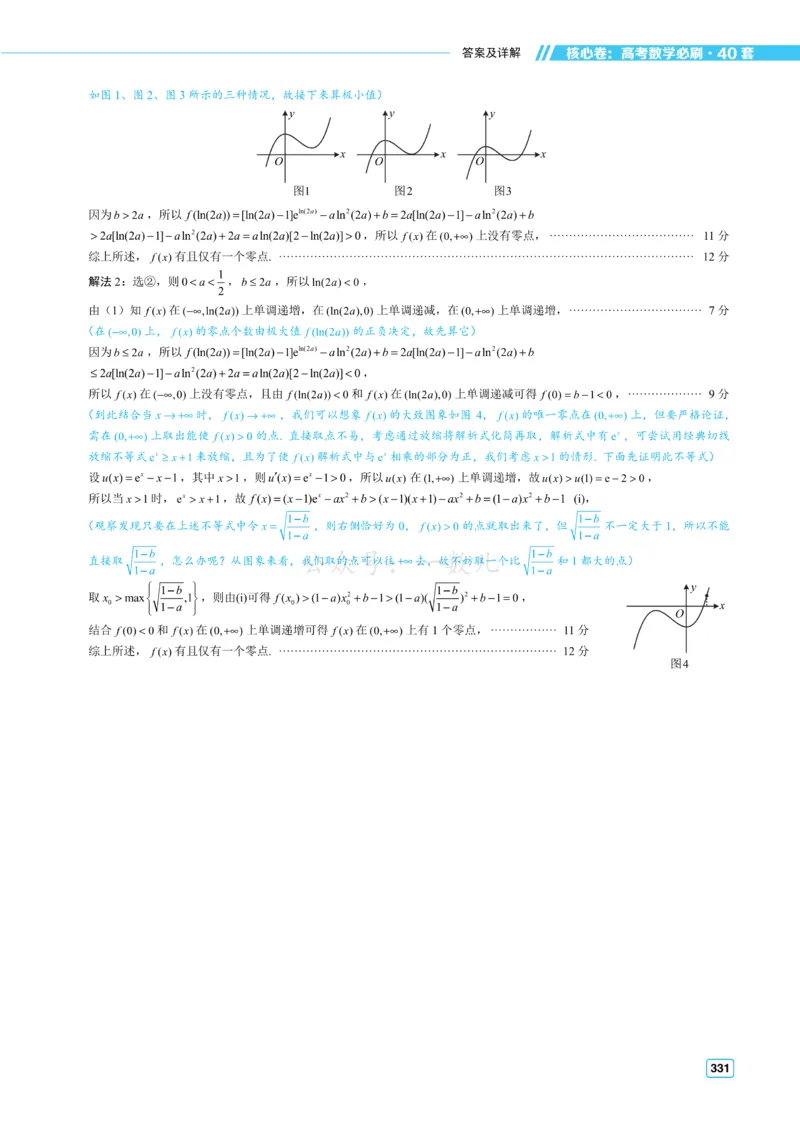 答案及详解 // 核心卷：高考数学必刷·40 套
如图 1、图 2、图 3 所示的三种情况，故接下来算极小值）
y y y
O x O x O x
图1 图2 图3
因为 b > 2a ，所以 f(ln(2a)) = [ln(2a)−1]e^{ln(2a)} − aln²(2a)+b = 2a[ln(2a)−1]−aln²(2a)+b
> 2a[ln(2a)−1]−aln²(2a)+2a = aln(2a)[2−ln(2a)] > 0 ，所以 f(x) 在 (0,+∞) 上没有零点， ………… 11 分
综上所述， f(x) 有且仅有一个零点. ………… 12 分
解法 2：选②，则 0 < a < 1/2 ， b ≤ 2a ，所以 ln(2a) < 0 ，
由（1）知 f(x) 在 (−∞,ln(2a)) 上单调递增，在 (ln(2a),0) 上单调递减，在 (0,+∞) 上单调递增， ………… 7 分
（在 (−∞,0) 上， f(x) 的零点个数由极大值 f(ln(2a)) 的正负决定，故先算它）
因为 b ≤ 2a ，所以 f(ln(2a)) = [ln(2a)−1]e^{ln(2a)} − aln²(2a)+b = 2a[ln(2a)−1]−aln²(2a)+b
≤ 2a[ln(2a)−1]−aln²(2a)+2a = aln(2a)[2−ln(2a)] < 0 ，
所以 f(x) 在 (−∞,0) 上没有零点，且由 f(ln(2a)) < 0 和 f(x) 在 (ln(2a),0) 上单调递减可得 f(0) = b−1 < 0 ， ………… 9 分
（到此结合当 x → +∞ 时， f(x) → +∞ ，我们可以想象 f(x) 的大致图象如图 4， f(x) 的唯一零点在 (0,+∞) 上，但要严格论证，
需在 (0,+∞) 上取出能使 f(x) > 0 的点. 直接取点不易，考虑通过放缩将解析式化简再取，解析式中有 e^x ，可尝试用经典切线
放缩不等式 e^x ≥ x+1 来放缩，且为了使 f(x) 解析式中与 e^x 相乘的部分为正，我们考虑 x > 1 的情形. 下面先证明此不等式）
设 u(x) = e^x − x − 1 ，其中 x > 1 ，则 u′(x) = e^x − 1 > 0 ，所以 u(x) 在 (1,+∞) 上单调递增，故 u(x) > u(1) = e−2 > 0 ，
所以当 x > 1 时， e^x > x+1 ，故 f(x) = (x−1)e^x − ax² + b > (x−1)(x+1) − ax² + b = (1−a)x² + b − 1 (i)，
（观察发现只要在上述不等式中令 x = √((1−b)/(1−a)) ，则右侧恰好为 0， f(x) > 0 的点就取出来了，但 √((1−b)/(1−a)) 不一定大于 1，所以不能
直接取 √((1−b)/(1−a)) ，怎么办呢？从图象来看，我们取的点可以往 +∞ 去，故不妨取一个比 √((1−b)/(1−a)) 和 1 都大的点）
公众号：一数儿
取 x₀ > max{√((1−b)/(1−a)),1} ，则由(i)可得 f(x₀) > (1−a)x₀² + b − 1 > (1−a)(√((1−b)/(1−a)))² + b − 1 = 0 ，
结合 f(0) < 0 和 f(x) 在 (0,+∞) 上单调递增可得 f(x) 在 (0,+∞) 上有 1 个零点， ………… 11 分
综上所述， f(x) 有且仅有一个零点. ………… 12 分
y
O x
图4
331